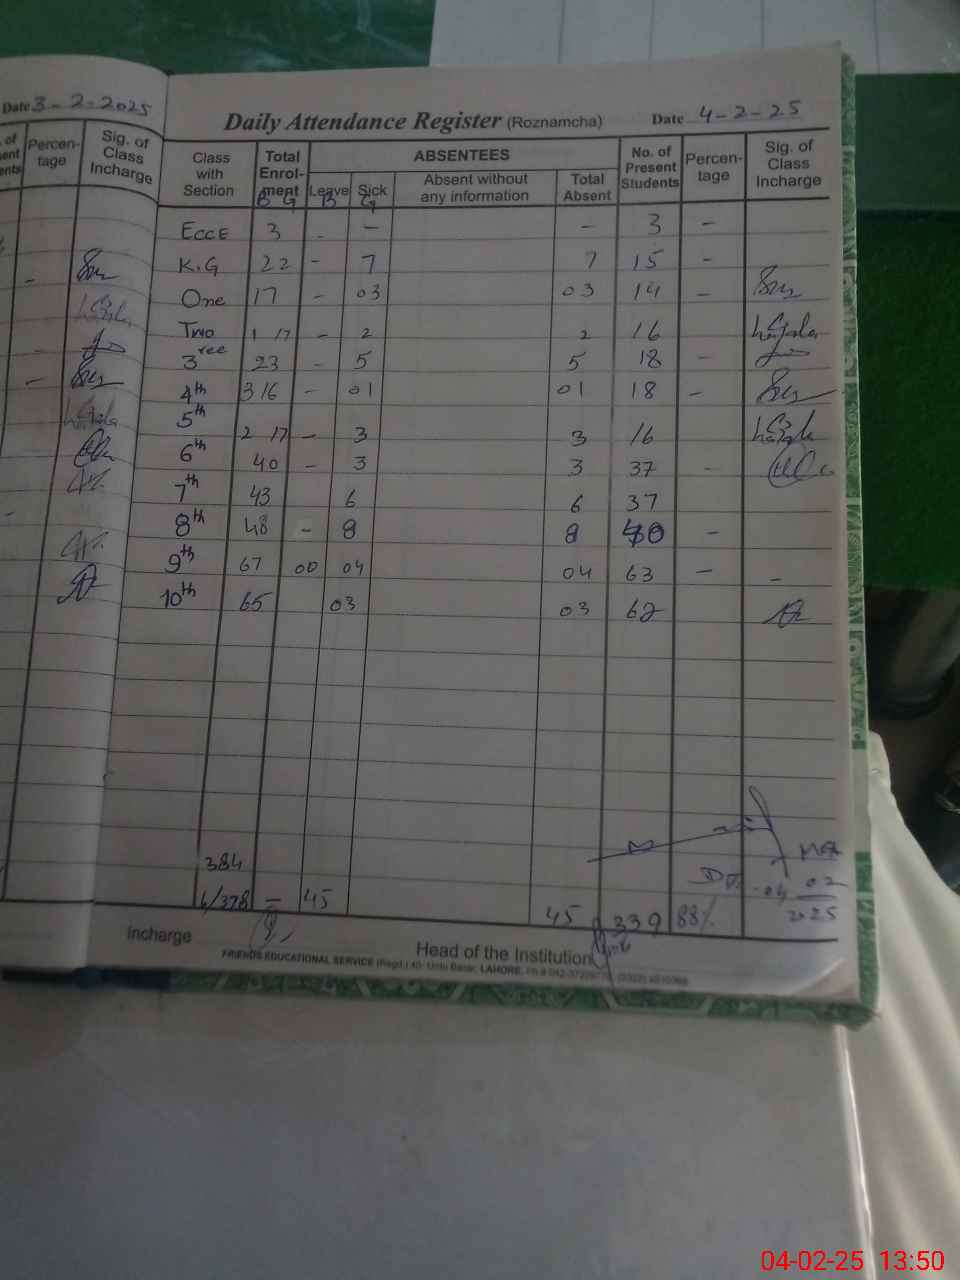 Date 3-2-2025
Percen-
tage
Sig. of
Class
Incharge
Daily Attendance Register (Roznamcha)
Date 4-2-25
Class
with
Section
Total
Enrol-
ment
B G
ABSENTEES
Leave
B
Sick
G
Absent without
any information
Total
Absent
No. of
Present
Students
Percen-
tage
Sig. of
Class
Incharge
ECCE 3 - - - 3 -
K.G 22 - 7 7 15 -
One 17 - 03 03 14 -
Two 1 17 - 2 2 16
3ree 23 - 5 5 18 -
4th 3 16 - 01 01 18 -
5th 2 17 - 3 3 16
6th 40 - 3 3 37 -
7th 43 6 6 37
8th 48 - 8 8 40 -
9th 67 00 04 04 63 - -
10th 65 03 03 62
384
6/378 - 45 45 339 88%
04 02
2025
incharge
Head of the Institution
FRIENDS EDUCATIONAL SERVICE (Regd.) 40- Urdu Bazar, LAHORE.
04-02-25 13:50